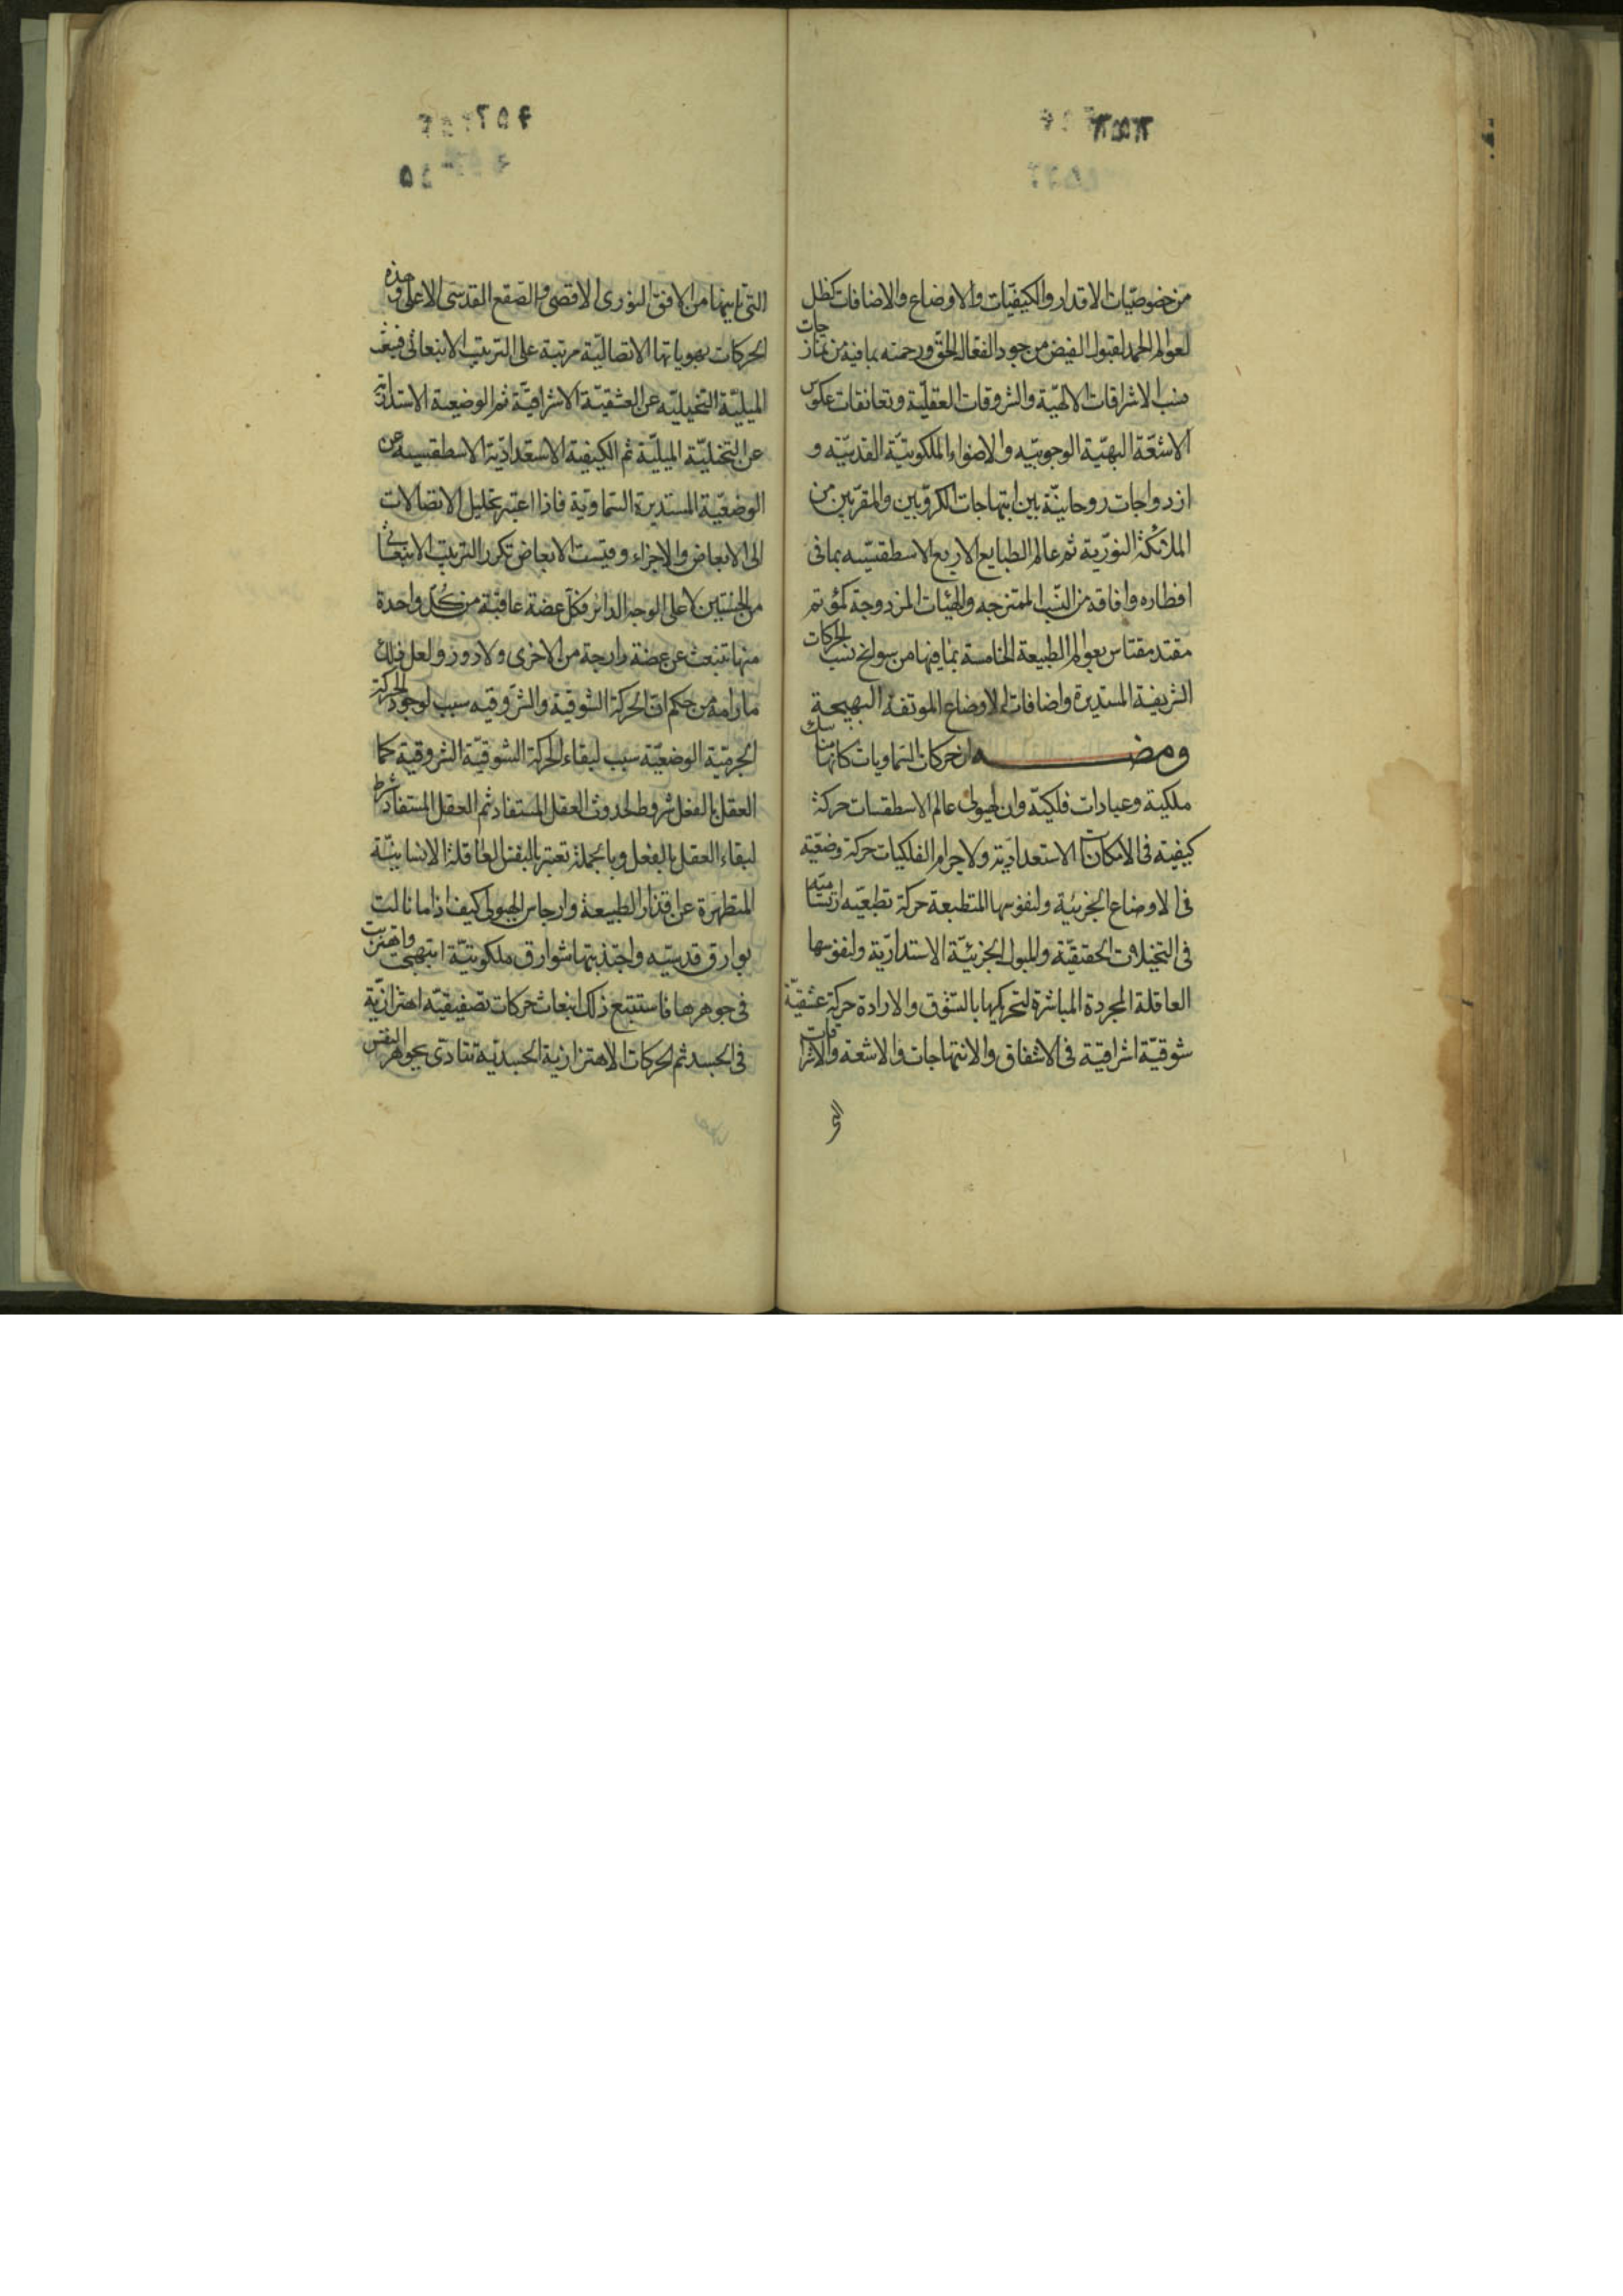 من خصوصيّات الاقدار والكيفيّات والاوضاع والاضافات كظل
لعوالم الحمد لقبول الفيض من جود الفعال الحق ورحمته بما فيه من تمازجات
نسب الاشراقات الالهيّة والشروقات العقليّة وتعانقات عكوس
الاشعّة البهيّة الوجوبيّه والاضواء الملكوتيّة القدسيّه و
ازدواجات روحانيّة بين ابتهاجات الكروّبين والمقرّبين من
الملائكة النوريّة ثم عالم الطبايع الاربع الاسطقسيّه بما فى
اقطاره وافاقه من النسب الممتزجه والهيئات المزدوجة كمؤتم
مقتد مقتاس بعوالم الطبيعة الخامسة بما فيها من سوانح نسب الحركات
الشريفة المستديرة واضافات الاوضاع الموتفة البهيجة
ومضه ان حركات السماويات كانها مناسك
ملكية وعبادات فلكيّة وان لهيولى عالم الاسطقسات حركة
كيفيه فى الامكانات الاستعداديّة ولاجرام الفلكيات حركة وضعيّة
فى الاوضاع الجزئية ولنفوسها المنطبعة حركة تطبعيّه ارتساميّه
فى التخيلات الحقيقيّة والميول الجزئيّة الاستداريّة ولنفوسها
العاقلة المجردة المباشرة لتحريكها بالتشوق والارادة حركة عشقيّة
شوقيّة اشراقيّة فى الاشفاق والابتهاجات والاشعة والاشراقات
التى
التى تاتيها من الافق النورى الاقصى والصقع القدسى الاعلى وهذه
الحركات بهوياتها الاتصاليّة مرتبة على الترتيب الانبعاثى فينبعث
الميليّة التخيليّه عن العشقيّة الاشراقيّة ثم الوضعية الاستداريّة
عن التخيليّة الميليّة ثم الكيفية الاستعداديّة الاسطقسيه عن
الوضعيّة المستديرة السماوية فاذا اعتبر تحليل الاتصالات
الى الابعاض والاجزاء وقيست الابعاض تكرر الترتيب الانبعاثى
من الجنبتين لا على الوجه الدائر فكل عضة عاقبة من كل واحدة
منها تنبعث عن عضة دارجة من الاخرى ولا دور ولعل ذلك
ما رامه من حكم ان الحركة الشوقية والشروقيه سبب لوجود الحركة
الجرميّة الوضعيّة سبب لبقاء الحركة الشوقيّة الشروقية كما
العقل بالفعل شروط لحدوث العقل المستفاد ثم العقل المستفاد شرط
لبقاء العقل بالفعل وبالجملة تعتبر بالنفس العاقلة الانسانيّة
المتطهرة عن اقذار الطبيعة وارجاس الهيولى كيف اذا ما نالت
بوارق قدسيّه واجتذبتها شوارق ملكوتيّة ابتهجت واهتزت
فى جوهرها فاستتبع ذلك انبعاث حركات تصفيقيّه اهتزازيّة
فى الجسد ثم الحركات الاهتزازية الجسديّة تتادى بجوهر النفس